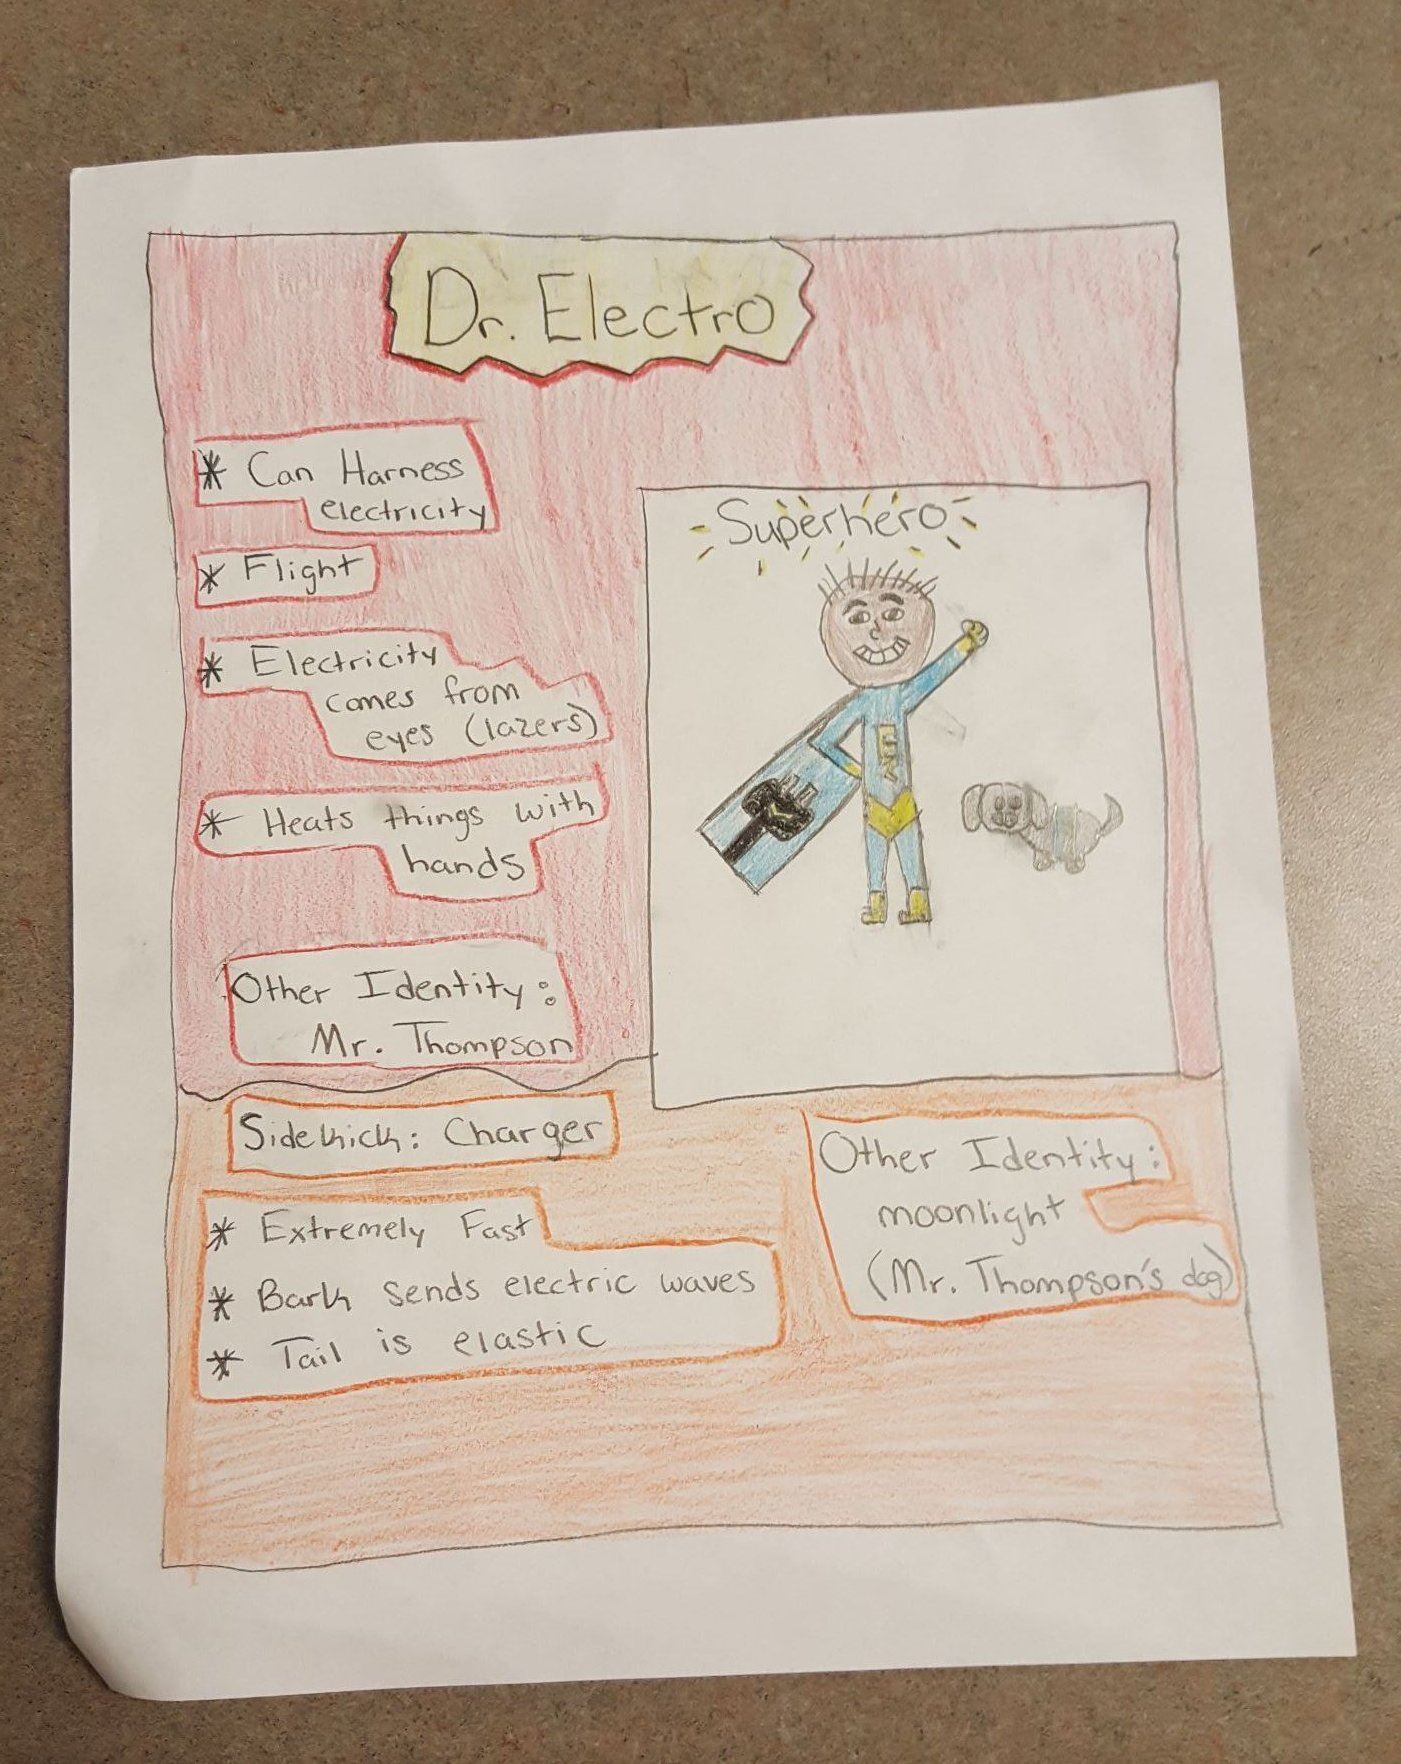 Dr. Electro
* Can Harness
electricity
* Flight
* Electricity
comes from
eyes (lazers)
* Heats things with
hands
Other Identity:
Mr. Thompson
Superhero
Sidekick: Charger
* Extremely Fast
* Bark sends electric waves
* Tail is elastic
Other Identity:
moonlight
(Mr. Thompson's dog)